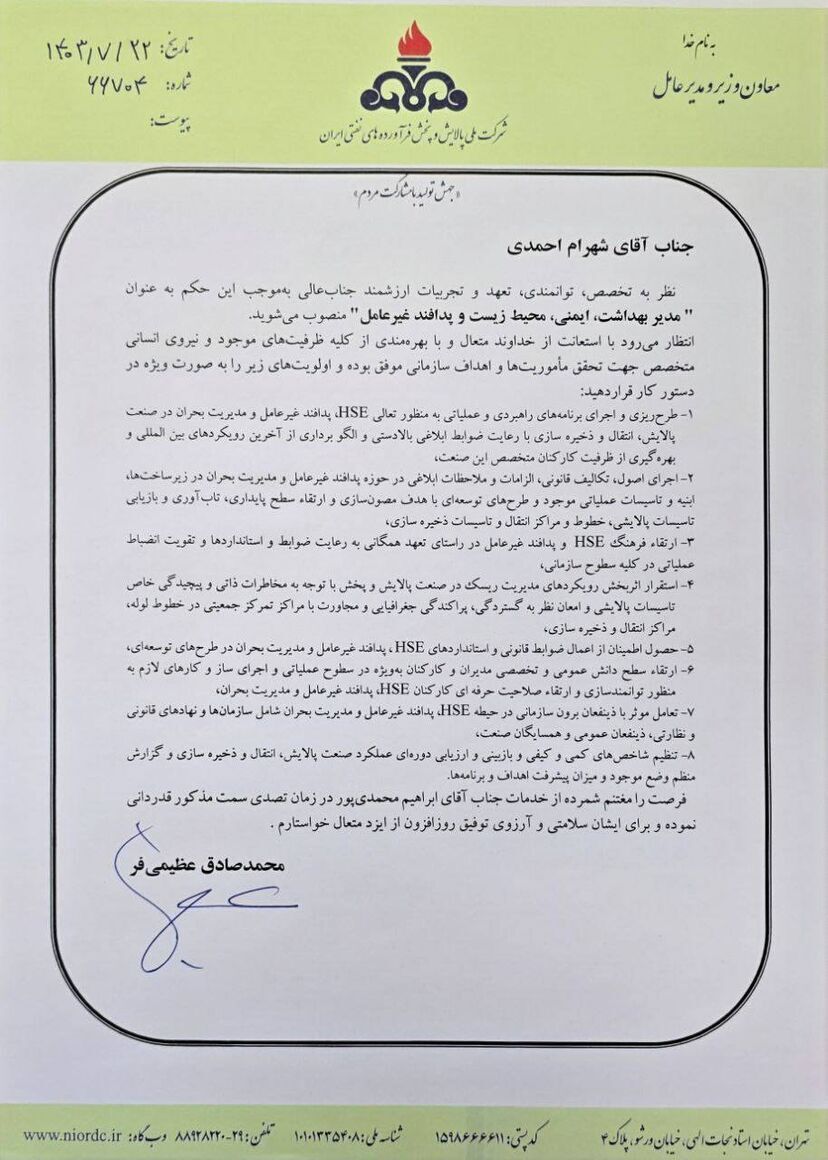 به نام خدا
معاون وزیر و مدیر عامل
تاریخ: ۱۴۰۳/۷/۲۲
شماره: ۶۶۷۰۴
پیوست:
شرکت ملی پالایش و پخش فرآورده های نفتی ایران
«جهش تولید با مشارکت مردم»
جناب آقای شهرام احمدی
نظر به تخصص، توانمندی، تعهد و تجربیات ارزشمند جناب‌عالی به‌موجب این حکم به عنوان
" مدیر بهداشت، ایمنی، محیط زیست و پدافند غیرعامل" منصوب می‌شوید.
انتظار می‌رود با استعانت از خداوند متعال و با بهره‌مندی از کلیه ظرفیت‌های موجود و نیروی انسانی
متخصص جهت تحقق مأموریت‌ها و اهداف سازمانی موفق بوده و اولویت‌های زیر را به صورت ویژه در
دستور کار قراردهید:
۱- طرح‌ریزی و اجرای برنامه‌های راهبردی و عملیاتی به منظور تعالی HSE، پدافند غیرعامل و مدیریت بحران در صنعت
پالایش، انتقال و ذخیره سازی با رعایت ضوابط ابلاغی بالادستی و الگو برداری از آخرین رویکردهای بین المللی و
بهره‌گیری از ظرفیت کارکنان متخصص این صنعت،
۲- اجرای اصول، تکالیف قانونی، الزامات و ملاحظات ابلاغی در حوزه پدافند غیرعامل و مدیریت بحران در زیرساخت‌ها،
ابنیه و تاسیسات عملیاتی موجود و طرح‌های توسعه‌ای با هدف مصون‌سازی و ارتقاء سطح پایداری، تاب‌آوری و بازیابی
تاسیسات پالایشی، خطوط و مراکز انتقال و تاسیسات ذخیره سازی،
۳- ارتقاء فرهنگ HSE و پدافند غیرعامل در راستای تعهد همگانی به رعایت ضوابط و استانداردها و تقویت انضباط
عملیاتی در کلیه سطوح سازمانی،
۴- استقرار اثربخش رویکردهای مدیریت ریسک در صنعت پالایش و پخش با توجه به مخاطرات ذاتی و پیچیدگی خاص
تاسیسات پالایشی و امعان نظر به گستردگی، پراکندگی جغرافیایی و مجاورت با مراکز تمرکز جمعیتی در خطوط لوله،
مراکز انتقال و ذخیره سازی،
۵- حصول اطمینان از اعمال ضوابط قانونی و استانداردهای HSE، پدافند غیرعامل و مدیریت بحران در طرح‌های توسعه‌ای،
۶- ارتقاء سطح دانش عمومی و تخصصی مدیران و کارکنان به‌ویژه در سطوح عملیاتی و اجرای ساز و کارهای لازم به
منظور توانمندسازی و ارتقاء صلاحیت حرفه ای کارکنان HSE، پدافند غیرعامل و مدیریت بحران،
۷- تعامل موثر با ذینفعان برون سازمانی در حیطه HSE، پدافند غیرعامل و مدیریت بحران شامل سازمان‌ها و نهادهای قانونی
و نظارتی، ذینفعان عمومی و همسایگان صنعت،
۸- تنظیم شاخص‌های کمی و کیفی و بازبینی و ارزیابی دوره‌ای عملکرد صنعت پالایش، انتقال و ذخیره سازی و گزارش
منظم وضع موجود و میزان پیشرفت اهداف و برنامه‌ها.
فرصت را مغتنم شمرده از خدمات جناب آقای ابراهیم محمدی‌پور در زمان تصدی سمت مذکور قدردانی
نموده و برای ایشان سلامتی و آرزوی توفیق روزافزون از ایزد متعال خواستارم .
محمدصادق عظیمی‌فر
تهران، خیابان استاد نجات الهی، خیابان ورشو، پلاک ۴ کدپستی: ۱۵۹۸۶۶۶۶۱۱ شناسه ملی: ۱۰۱۰۱۳۳۵۴۰۸ تلفن: ۲۹-۸۸۹۲۸۲۲۰ وب گاه: www.niordc.ir